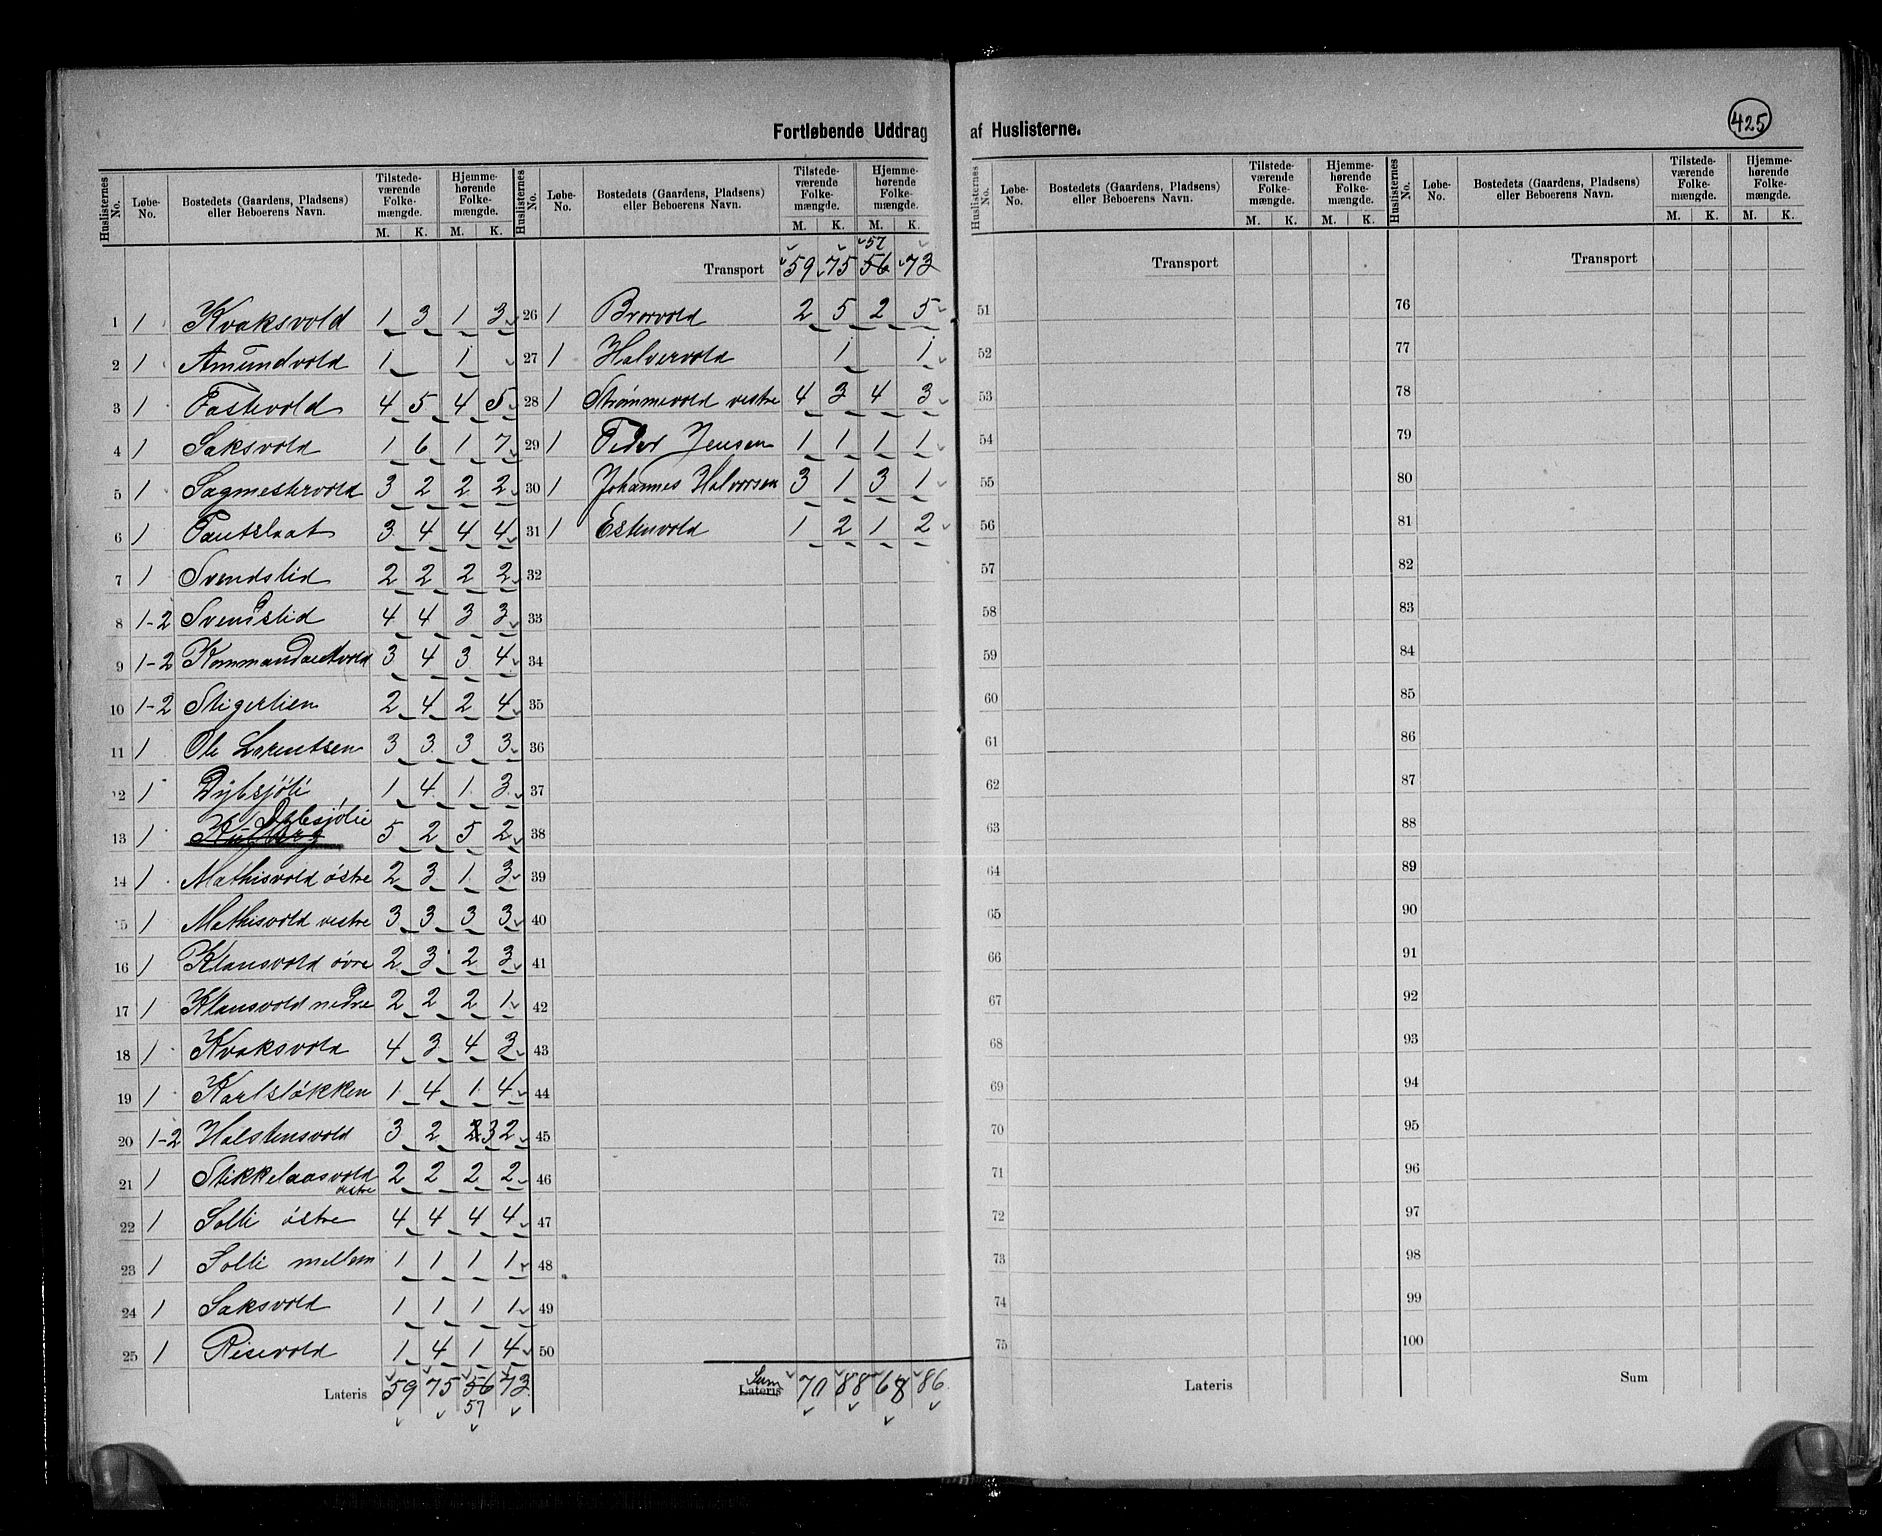 Fortløbende Uddrag af Huslisterne.
425
Huslisternes No. | Løbe-No. | Bostedets (Gaardens, Pladsens) eller Beboerens Navn. | Tilstedeværende Folkemængde. M. K. | Hjemmehørende Folkemængde. M. K.
1 1 Kvaksvold 1 3 1 3
2 1 Amundvold 1 1
3 1 Tostevold 4 5 4 5
4 1 Saksvold 1 6 1 7
5 1 Sagmestervold 3 2 2 2
6 1 3 4 4 4
7 1 Svendslid 2 2 2 2
8 1-2 Svendslid 4 4 3 3
9 1-2 Kommandantvold 3 4 3 4
10 1-2 Stigerlien 2 4 2 4
11 1 Ole Lorentsen 3 3 3 3
12 1 Dybsjöli 1 4 1 3
13 1 Dybsjölie 5 2 5 2
14 1 Mathisvold östre 2 3 1 3
15 1 Mathisvold vestre 3 3 3 3
16 1 Klausvold övre 2 3 2 3
17 1 Klausvold nedre 2 2 2 1
18 1 Kvaksvold 4 3 4 3
19 1 Karlslökken 1 4 1 4
20 1-2 Holstensvold 3 2 2 3 2
21 1 Stikkelaasvold vestre 2 2 2 2
22 1 Solli östre 4 4 4 4
23 1 Solli mellem 1 1 1 1
24 1 Saksvold 1 1 1 1
25 1 Risevold 1 4 1 4
Lateris 59 75 56 73
57
Huslisternes No. | Løbe-No. | Bostedets (Gaardens, Pladsens) eller Beboerens Navn. | Tilstedeværende Folkemængde. M. K. | Hjemmehørende Folkemængde. M. K.
57
Transport 59 75 56 73
26 1 Brorvold 2 5 2 5
27 1 Halvervold 1 1
28 1 Strömmevold vestre 4 3 4 3
29 1 Peder Jensen 1 1 1 1
30 1 Johannes Halvorsen 3 1 3 1
31 1 Estenvold 1 2 1 2
32
33
34
35
36
37
38
39
40
41
42
43
44
45
46
47
48
49
50
Sum
Lateris 70 88 68 86
Huslisternes No. | Løbe-No. | Bostedets (Gaardens, Pladsens) eller Beboerens Navn. | Tilstedeværende Folkemængde. M. K. | Hjemmehørende Folkemængde. M. K.
Transport
51
52
53
54
55
56
57
58
59
60
61
62
63
64
65
66
67
68
69
70
71
72
73
74
75
Lateris
Huslisternes No. | Løbe-No. | Bostedets (Gaardens, Pladsens) eller Beboerens Navn. | Tilstedeværende Folkemængde. M. K. | Hjemmehørende Folkemængde. M. K.
Transport
76
77
78
79
80
81
82
83
84
85
86
87
88
89
90
91
92
93
94
95
96
97
98
99
100
Sum